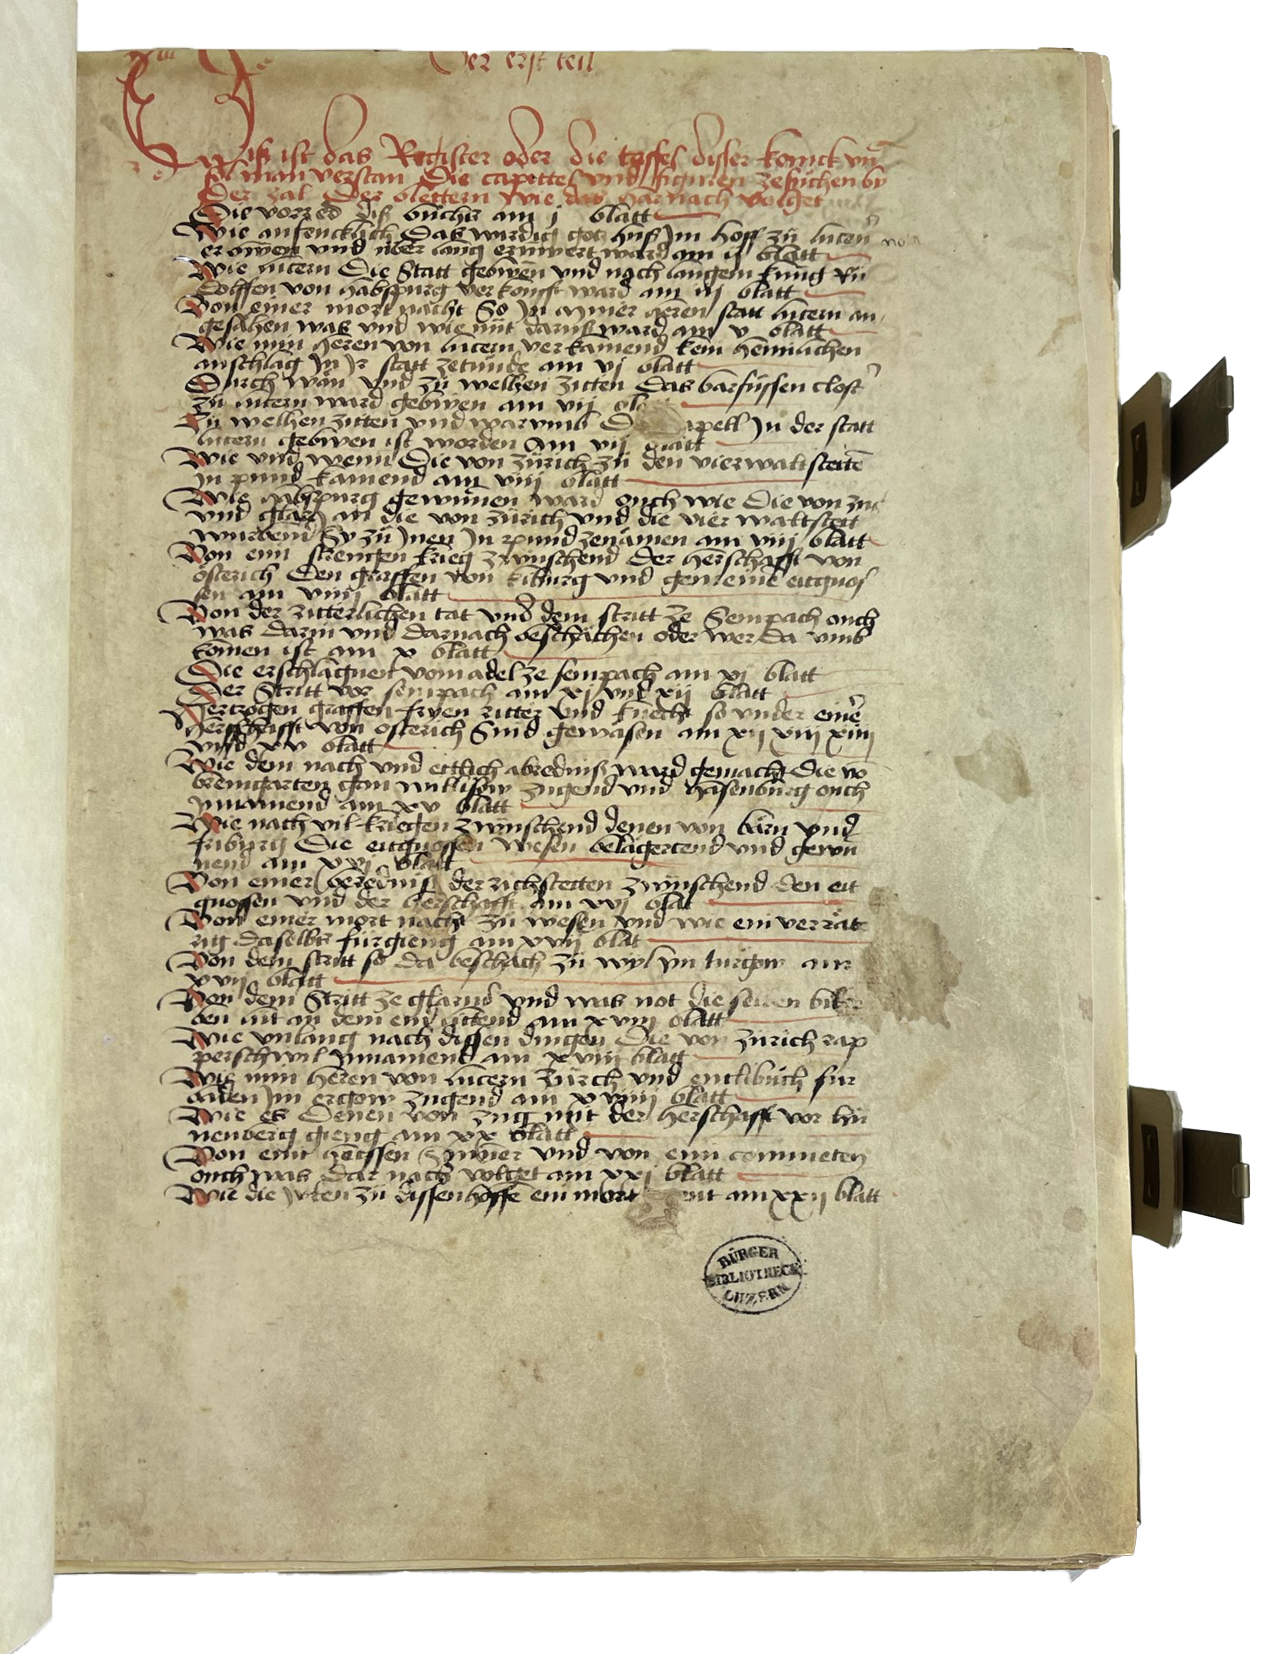 Der erst teil
Diß ist das Register oder die taffel diser kronick vnd
sol man verstan die capittel vnd figuren ze suchen by
der zal der blettern wie das harnach volget
Die vorred diß buchs am j blatt
Wie anfencklich das wirdig gotzhuß Im hoff zů lucern
erbuwen vnd über lang ernüwert ward am ij blatt
Wie lucern die Statt gebuwen vnd nach langem küng Rů
dolffen von habspurg verkoufft ward am iij blatt
Von einer mortnacht So In miner heren statt lucern an
gesähen was vnd wie nüt daruß ward am v blatt
Wie min heren von lucern verkamend kein heimlichen
anschlag In Jr statt ze tůnde am vj blatt
Durch wän vnd zů welhen zitten das barfůssen closter
zů lucern ward gebuwen am vij bla
Zů welhen zitten vnd warumb D apell In der statt
lucern gebuwen ist worden am vij blatt
Wie vnd wenn die von zürich zů den vier waltstetten
In pund kamend am viij blatt
Wie habspurg gewunnen ward ouch wie die von zug
vnd glaris an die von zürich vnd die vier waltstett
wurbend Sy zů Inen In pund ze nämen am viij blatt
Von eim strengen krieg zwüschend der herschafft von
österich den graffen von kiburg vnd gemeine eitgnos
sen am viiij blatt
Von der ritterlichen tat vnd dem stritt ze Sempach ouch
was darin vnd darnach beschächen oder wer da vmb
komen ist am x blatt
Die erschlagnen vom adel ze sempach am xj blatt
Der Stritt vor sempach am xj vnd xij blatt
Hertzogen graffen fryen ritter vnd knecht so vnder einer
herschafft von österich Sind gewäsen am xij xiij xiiij
vnd xv blatt
Wie dem nach vnd ettlich abredniß ward gemacht die vo
bremgarten gan willisow zugend vnd hasenburg ouch
Innamend am xv blatt
Wie nach vil kriegen zwüschend denen von bärn vnd
friburg die eitgnossen wesen belägertend vnd gewun
nend am xvj blatt
Von einer beredniß der richstetten zwüschend den eit
gnossen vnd der herschafft am xvj blat
Von einer mortnacht zů wesen vnd wie ein verrät
rig daselbs fürgieng am xvij blat
Von dem stritt so da beschach zů wyl Im turgow am
xvij blatt
Von dem Stritt ze glarus vnd was not die selben bider
ben lüt an dem end littend am xviij blatt
Wie vnlang nach dissen dingen die von zürich rap
perschwil Innamend am xviij blatt
Wie min heren von lucern zürch vnd entlibuch für
baden Im ergow zugend am xviiij blatt
Wie es denen von zug mit der herschafft vor hü
nenberg gieng am xx blatt
Von eim heissen Summer vnd von eim commeten
ouch was dar nach volget am xxj blatt
Wie die Juden zů dissenhoffe ein mort am xxij blatt
BÜRGER
BIBLIOTHECK
LUZERN